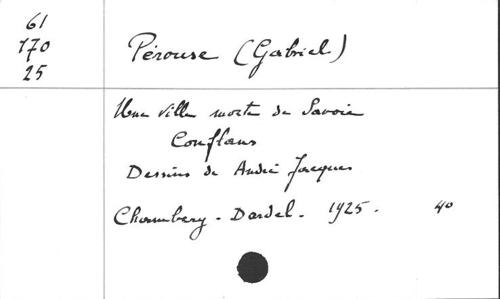 61
170
25
Pérouse (Gabriel)
Une ville morte de Savoie
Conflans
Dessins de André Jacques
Chambery - Dardel - 1925 - 40